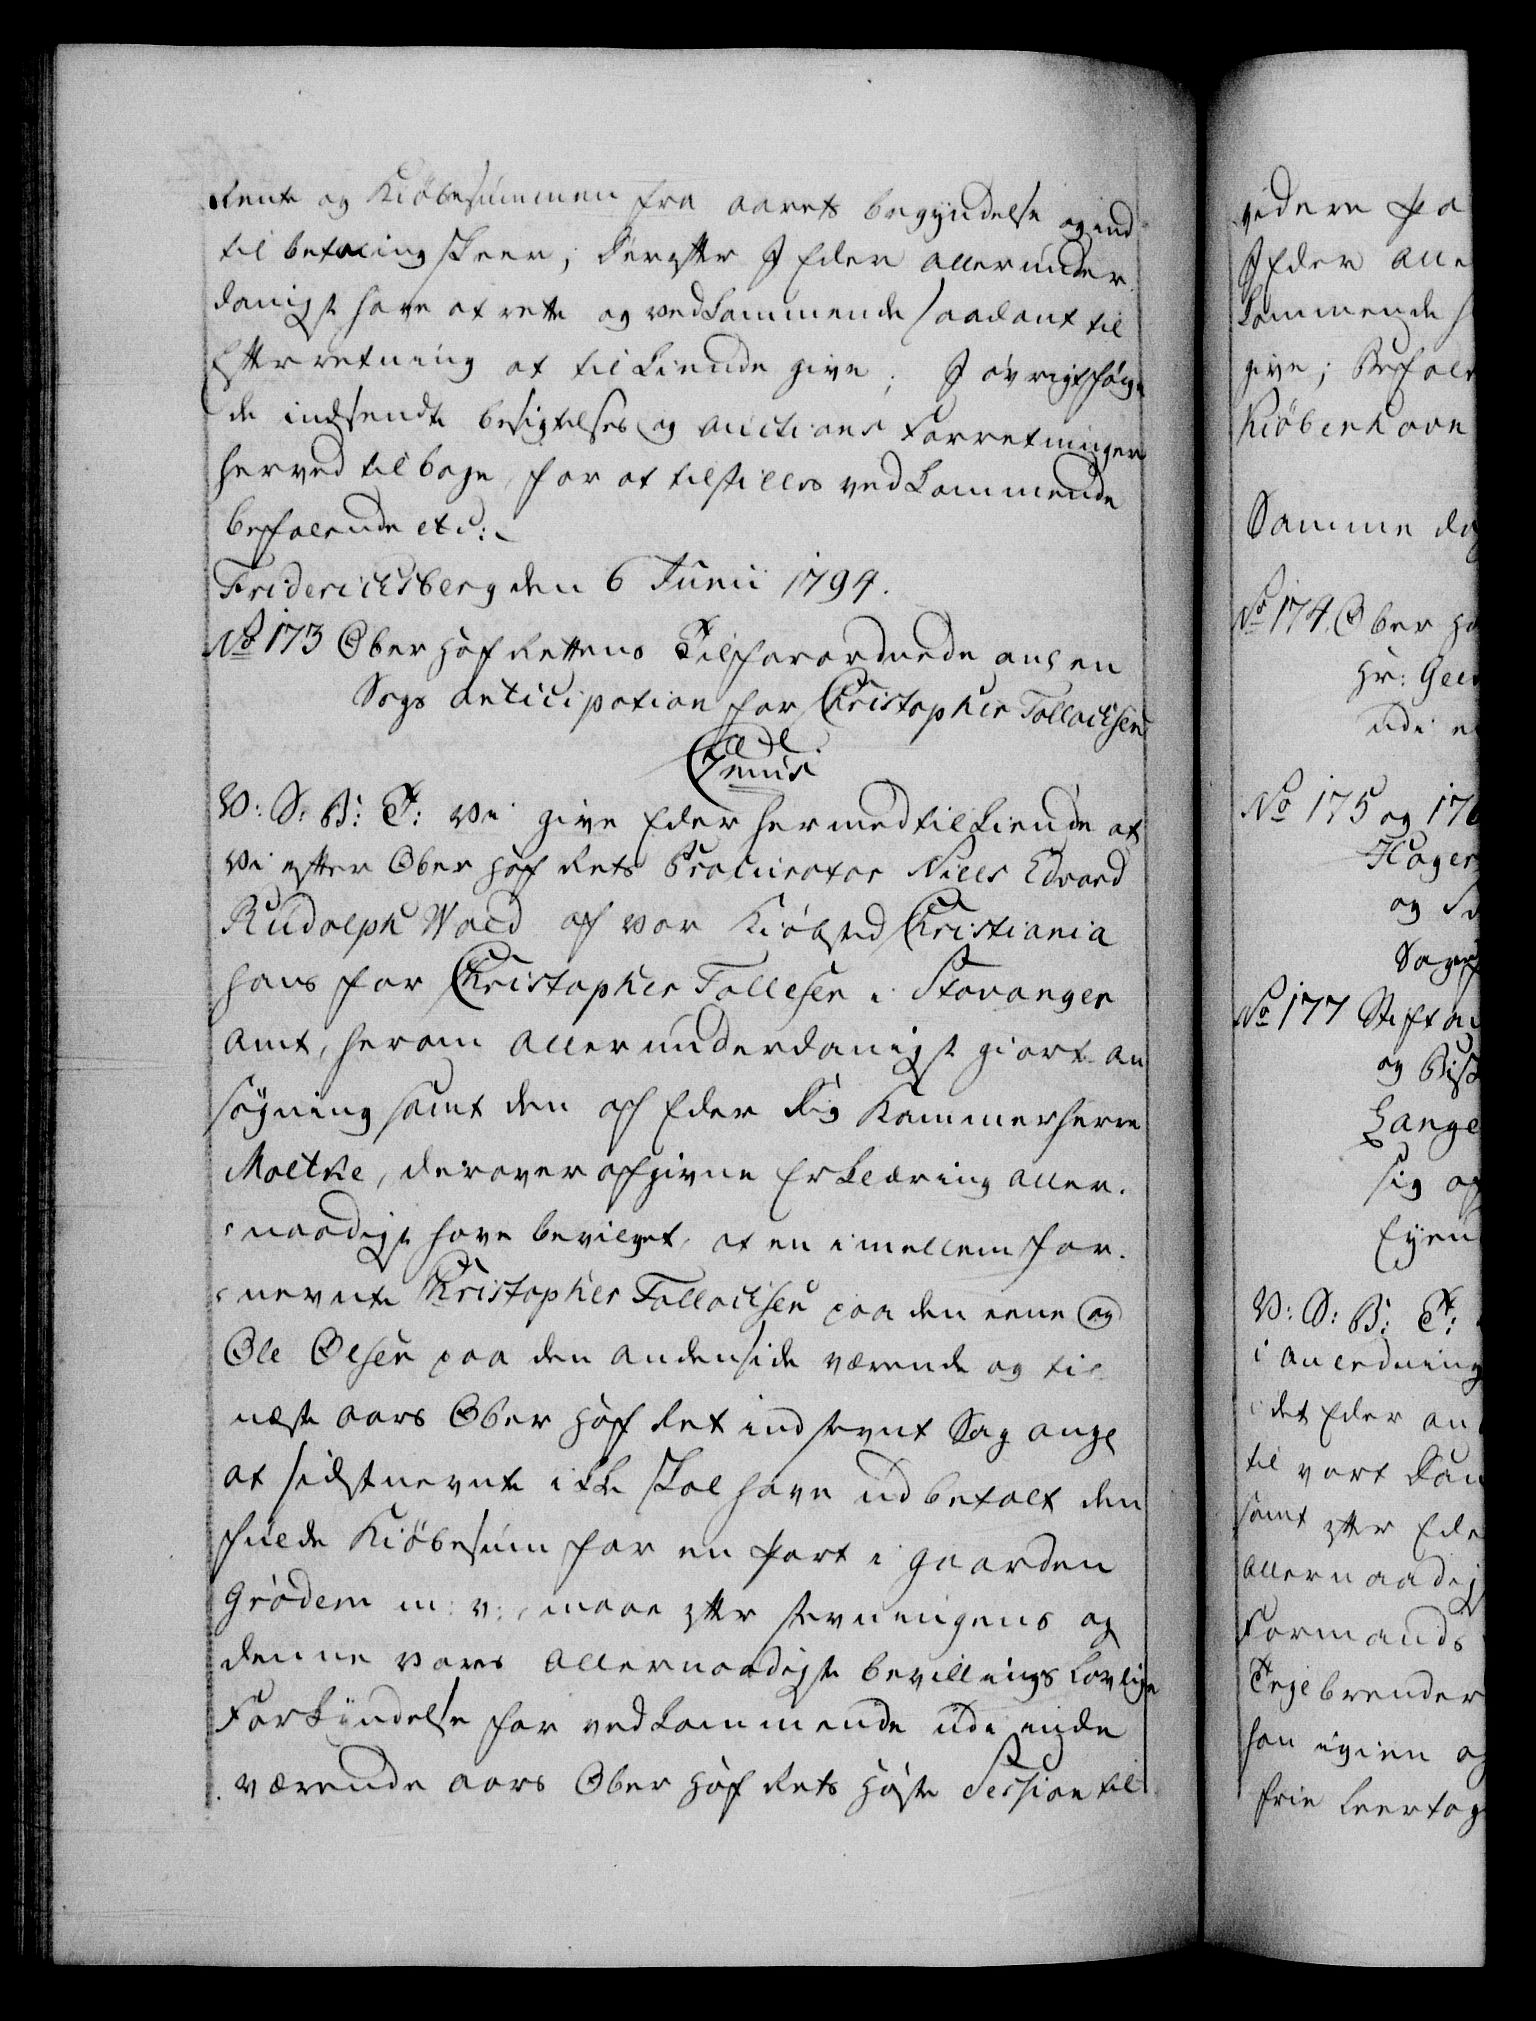 Rente og Kiöbesummen fra aarets begyndelse og ind
til betaling skeer; derefter I Eder allerunder
danigst have at rette og vedkommende saadant til
Efterretning at tilkiende give; I øvrigt følge
de indsendte besigtelses og auctions Forretninger
herved tilbage, for at tilstilles vedkommende
befalende etc:
Friderichsberg den 6 Junii 1794.
No 173 Ober Hof Rettens Tilforordnede anl en
Sags anticipation for Christopher Tollacksen
V: S: B: T: Vi give Eder hermed tilkiende at
Vi efter Ober Hof Rets Procurator Niels Edvard
Rudolph Wold af vor Kiöbsted Christiania
hans for Christopher Tollesen i Stavanger
Amt, herom allerunderdanigst giort an
søgning samt den af Eder Dig Kammerherre
Moltke, derover afgivne Erklæring aller-
naadigst have bevilget, at en imellem for-
nevnte Christopher Tollacksen paa den eene og
Ole Olsen paa den anden side værende og til
næste aars Ober Hof Ret indstevnt Sag ang:
at sidstnevnte ikke skal have udbetalt den
fulde Kiöbesum for en Part i gaarden
Grödem m: v:, maae efter stevningens og
denne vores allernaadigste bevillings lovlige
Forkyndelse for vedkommende udi inde
værende aars Ober Hof Rets høste Session til
videre Pa
I Eder Alle
kommende s
give; Befale
Kiöbenhavn
Samme da
No 174. Ober Ho
Hr: Gee
udi e
No 175 og 176
Hager
og S
Sag
No 177 Stiftam
og Bisc
Lange
sig af
Eyen
V: S: B: T:
i anledning
det Eder an
til vort Dan
samt efter Ede
Allernaadig
Formands
Tegebrender
han igien og
frie